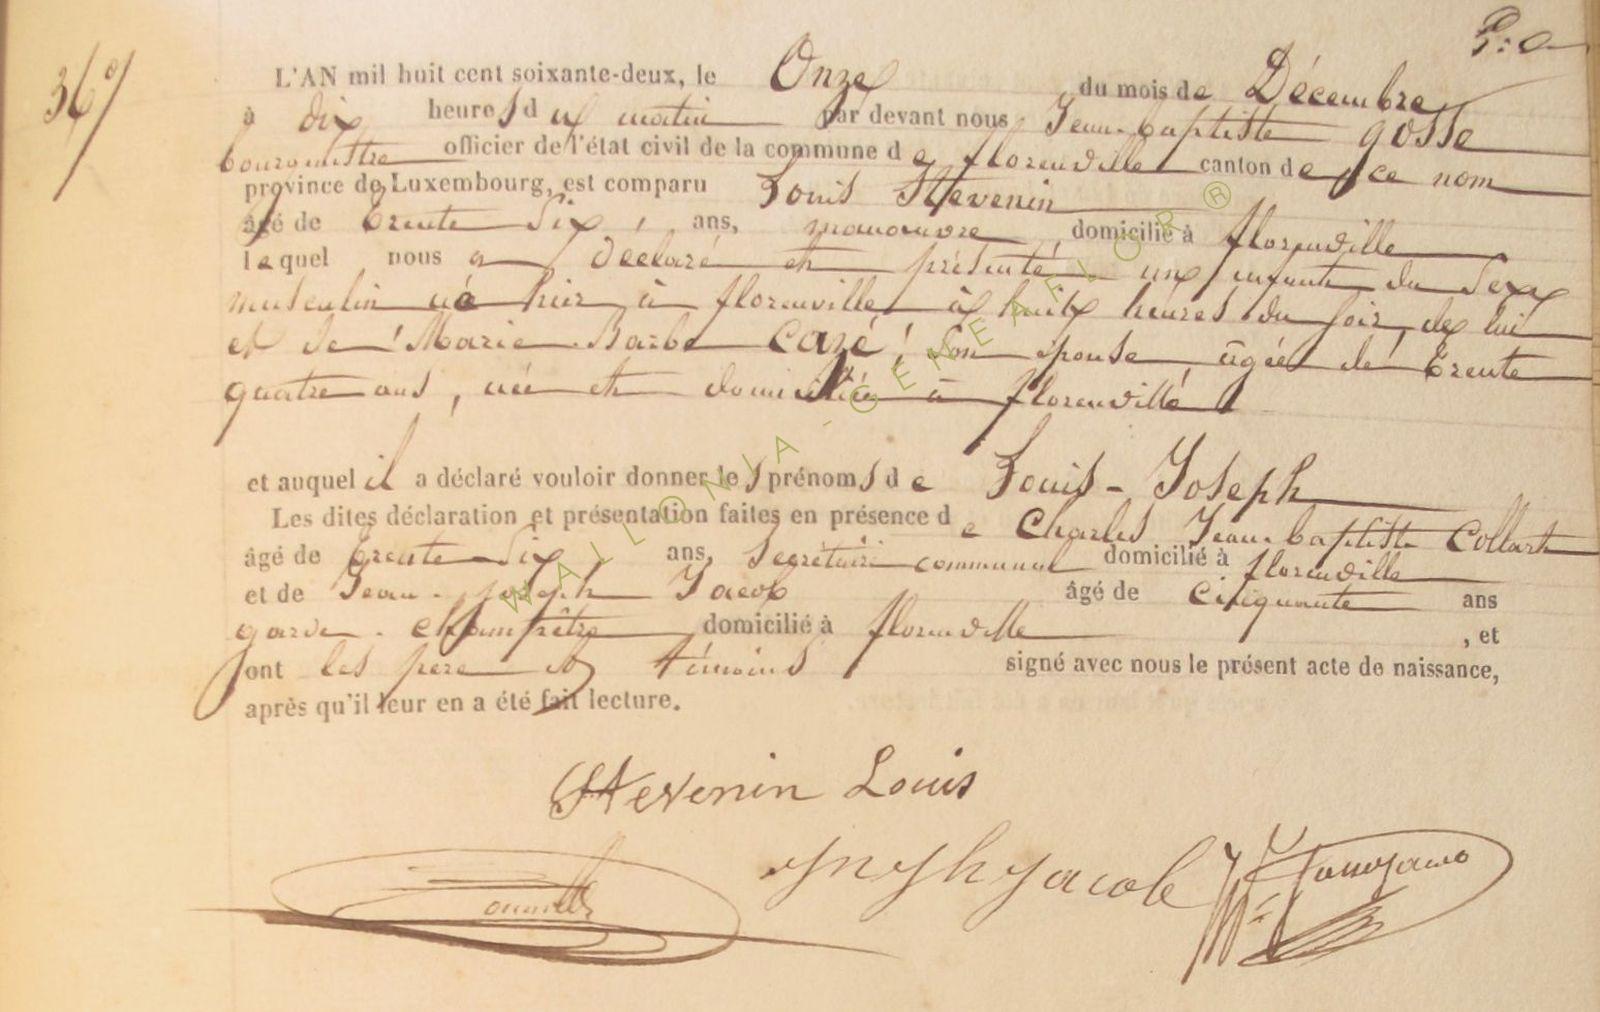 36º/
L'AN mil huit cent soixante-deux, le Onze du mois de Décembre
à dix heures du matin par devant nous Jean-baptiste gosse
bourgmestre officier de l'état civil de la commune de florenville canton de ce nom
province de Luxembourg, est comparu Louis Stevenin
âgé de trente six, ans, manoeuvre domicilié à florenville
lequel nous a déclaré et présenté un enfant du sexe
masculin né hier à florenville à huit heures du soir, de lui
et de Marie-Barbe Cazé, son épouse, âgée de trente
quatre ans, née et domiciliée à florenville,
et auquel il a déclaré vouloir donner les prénoms de Louis-Joseph
Les dites déclaration et présentation faites en présence de Charles Jean-baptiste Collart
âgé de trente six ans, Secrétaire communal domicilié à florenville
et de Jean-joseph Jacob âgé de cinquante ans
garde-champêtre domicilié à florenville, et
ont les père et témoins signé avec nous le présent acte de naissance,
après qu'il leur en a été fait lecture.
Stevenin Louis
Jacob
WALLONIA-GENEAFLOR®